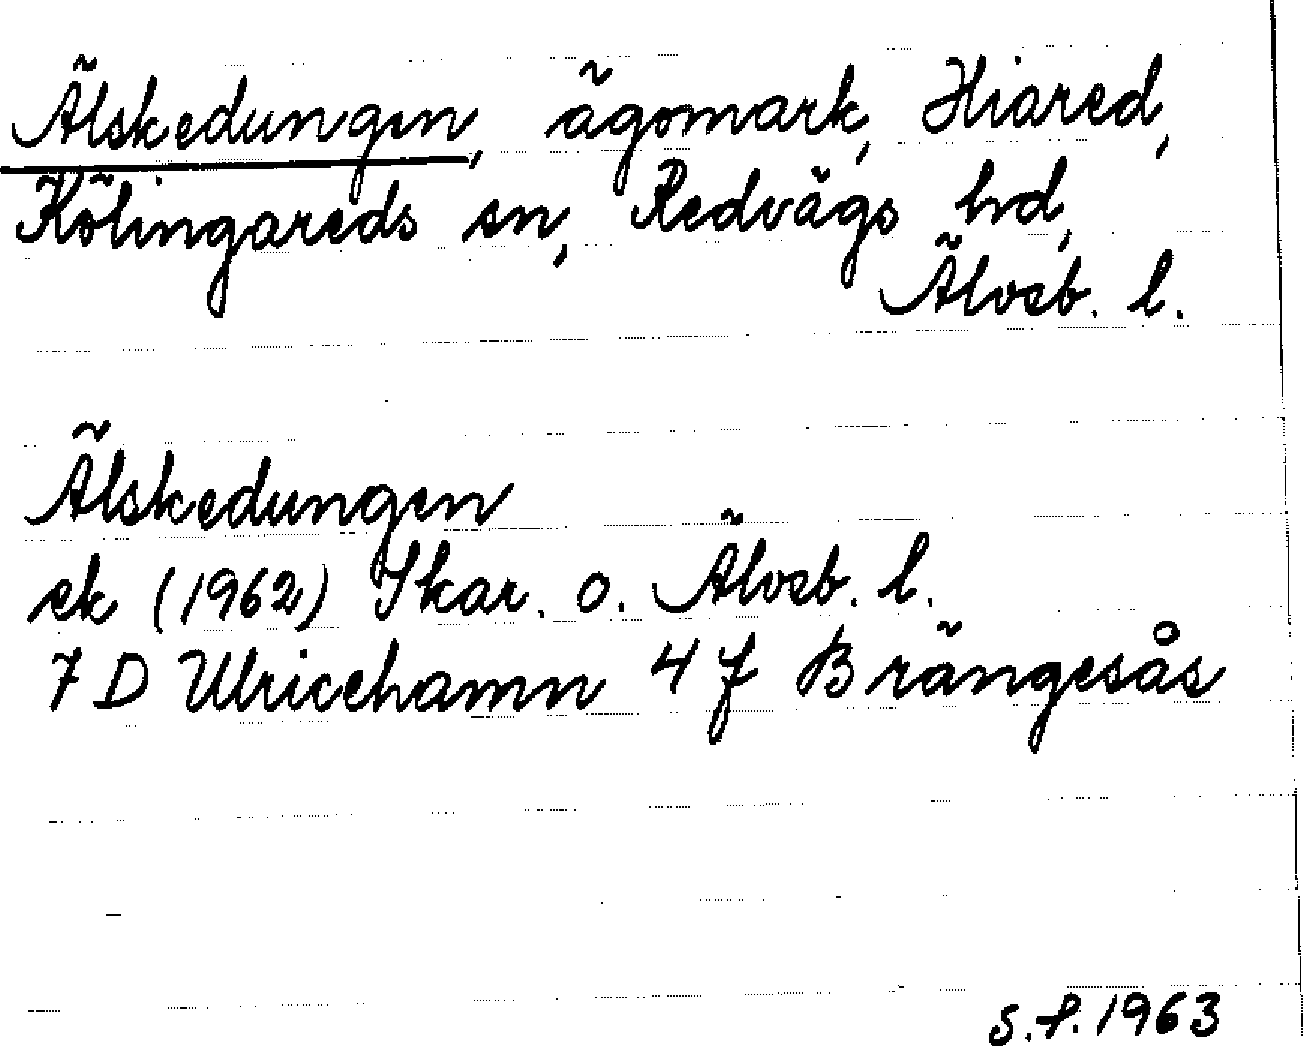 Älskedungen, ägomark, Hiared,
Kölingareds sn, Redvägs hd,
Älvsb. l.
Älskedungen
ek (1962) Skar. o. Älvsb. l.
7 D Ulricehamn 4 f Brängesås
S.F. 1963